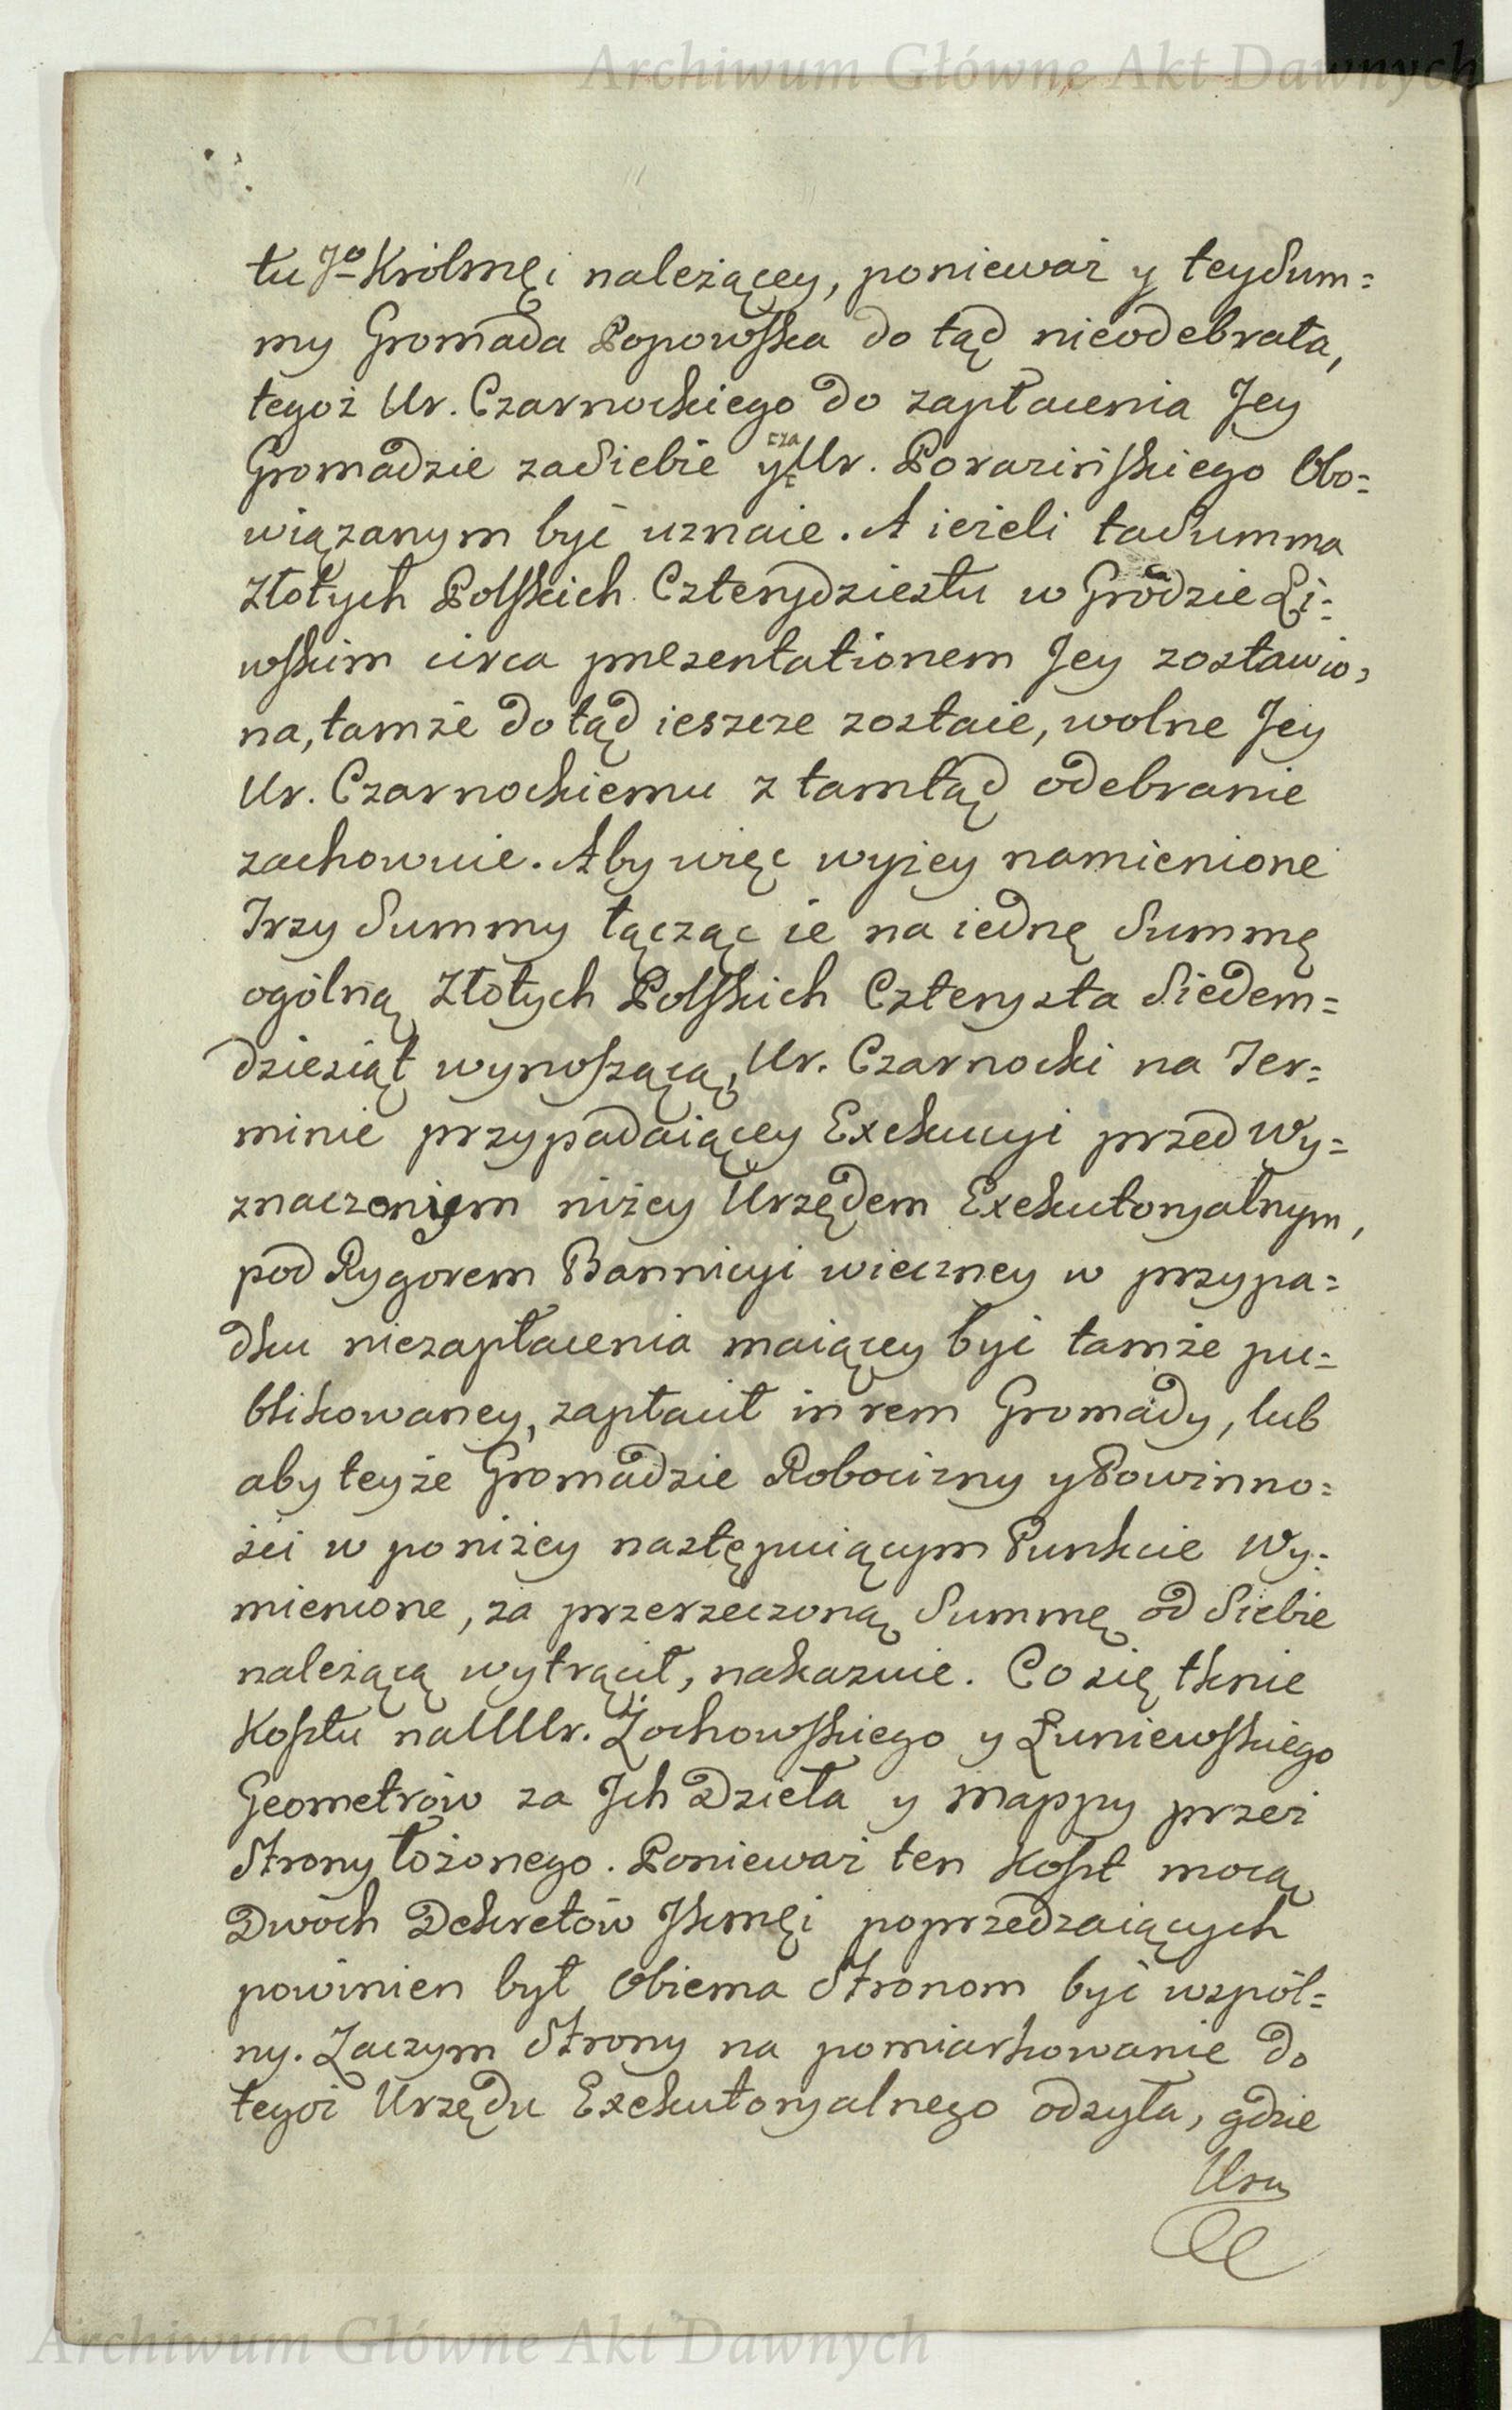 Archiwum Główne Akt Dawnych
tu Jo Królmęi należącey, ponieważ y tey Sum=
my Gromada Popowska do tąd nieodebrała,
tegoż Ur. Czarnockiego do zapłacenia Jey
Gromadzie za Siebie y za Ur. Porazińskiego Obo=
wiązanym być uznaie. A ieżeli ta Summa
Złotych Polskich Czterydziestu w Grodzie Li=
wskim circa prezentationem Jey zostawio,
na, tamże do tąd ieszcze zostaie, wolne Jey
Ur. Czarnockiemu z tamtąd odebranie
zachowuie. Aby więc wyżey namienione
Trzy Summy łącząc ie na iednę Summę
ogólną Złotych Polskich Czterysta Siedem=
dziesiąt wynoszącą, Ur. Czarnocki na Ter=
minie przypadaiącey Exekucyi przed Wy=
znaczonym niżey Urzędem Exekutoryalnym,
pod Rygorem Bannicyi wieczney w przypa=
dku niezapłacenia maiącey być tamże pu=
blikowaney, zapłacił in rem Gromady, lub
aby teyże Gromadzie Robocizny y Powinno=
ści w poniżey następuiącym Punkcie Wy=
mienione, za przerzeczoną Summę od Siebie
należącą wytrącił, nakazuie. Co się tknie
Kosztu na UUr. Żochowskiego y Łuniewskiego
Geometrów za Jch Dzieła y Mappy przez
Strony łożonego. Ponieważ ten Koszt mocą
Dwóch Dekretów Jkmęi poprzedzaiących
powinien był Obiema Stronom być wspól=
ny. Zaczym Strony na pomiarkowanie do
tegoż Urzędu Exekutoryalnego odsyła, gdzie
Urzą
Archiwum Główne Akt Dawnych